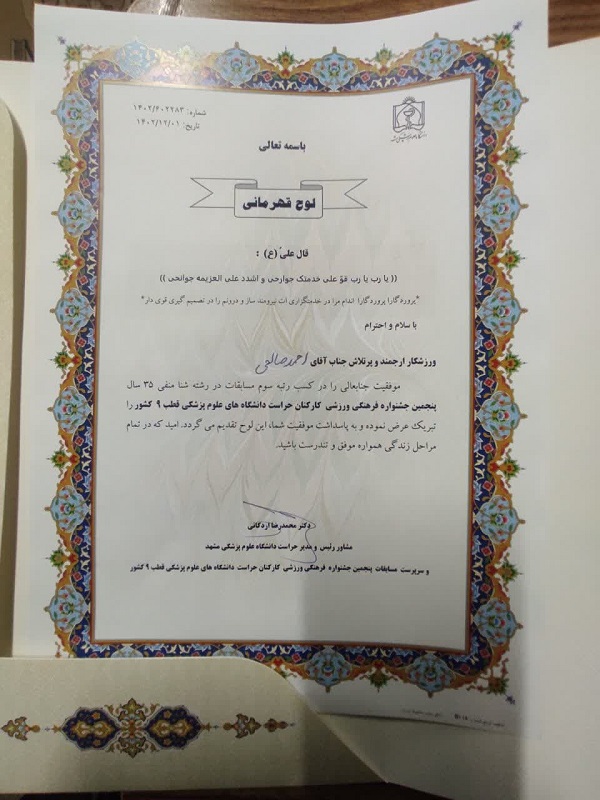 شماره: ۱۴۰۲/۶۰۲۲۸۳
تاریخ: ۱۴۰۲/۱۲/۰۱
باسمه تعالی
لوح قهرمانی
قال علی (ع) :
(( یا رب یا رب قوّ علی خدمتک جوارحی و اشدد علی العزیمه جوانحی ))
"پروردگارا پروردگارا اندام مرا در خدمتگزاری ات نیرومند ساز و درونم را در تصمیم گیری قوی دار"
با سلام و احترام
ورزشکار ارجمند و پرتلاش جناب آقای احمد صالحی
موفقیت جنابعالی را در کسب رتبه سوم مسابقات در رشته شنا منفی ۳۵ سال
پنجمین جشنواره فرهنگی ورزشی کارکنان حراست دانشگاه های علوم پزشکی قطب ۹ کشور را
تبریک عرض نموده و به پاسداشت موفقیت شما، این لوح تقدیم می گردد. امید که در تمام
مراحل زندگی همواره موفق و تندرست باشید.
دکتر محمدرضا اردکانی
مشاور رئیس و مدیر حراست دانشگاه علوم پزشکی مشهد
و سرپرست مسابقات پنجمین جشنواره فرهنگی ورزشی کارکنان حراست دانشگاه های علوم پزشکی قطب ۹ کشور